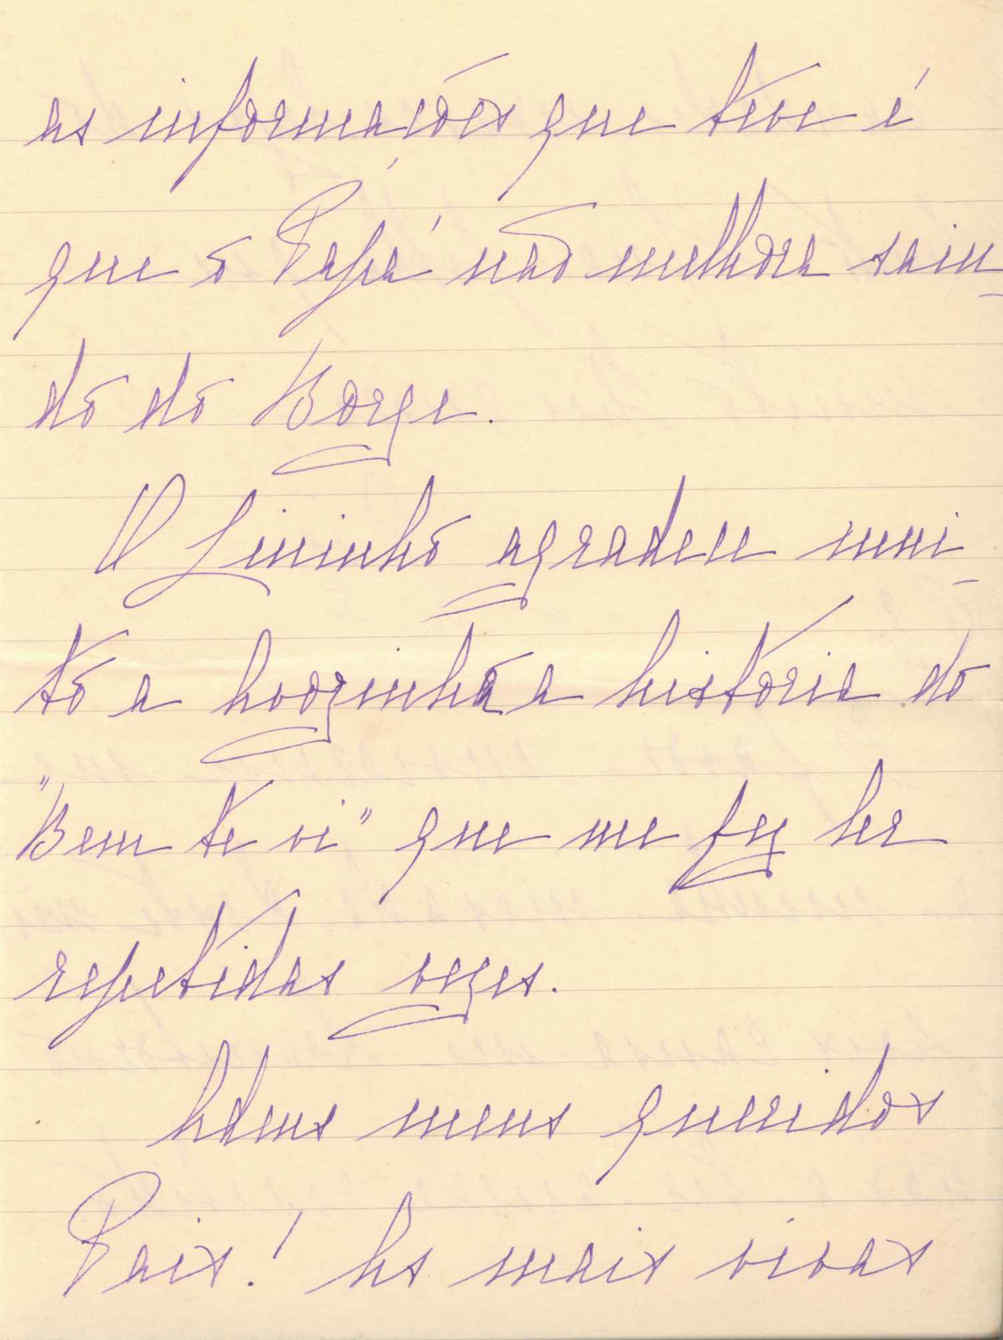 as informações que teve é
que o Papá não melhora sain-
do do Borge.
O Lininho agradece mui-
to a hoozinha a historia do
"Bem te vi" que me fez ler
repetidas vezes.
Adeus meus queridos
Pais! As mais vivas